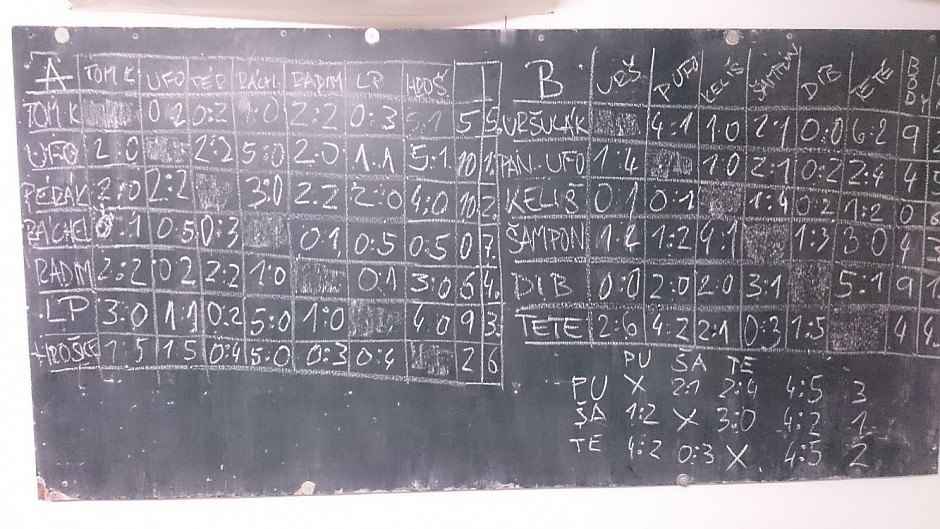 A TOM K UFO PER RACHL RADIM LP HROŠ
TOM K 0:2 0:2 1:0 2:2 0:3 5:1 5 5.
UFO 2:0 2:2 5:0 2:0 1:1 5:1 10 1.
2:0 2:2 3:0 2:2 2:0 4:0 10 2.
0:1 0:5 0:3 0:1 0:5 0:5 0 7.
RADIM 2:2 0:2 2:2 1:0 0:1 3:0 4.
LP 3:0 1:1 0:2 5:0 1:0 4:0 9 3.
HROŠ 1:5 1:5 0:4 5:0 0:3 0:4 2 6
B URŠ P UFO KELIŠ ŠAMPÓN DIB TETE BODY
URŠULAK 4:1 1:0 2:1 0:0 6:2 9
PAN. UFO 1:4 1:0 2:1 0:2 2:4 4
KELIŠ 0:1 0:1 1:4 0:2 1:2 0
ŠAMPON 1:2 1:2 4:1 1:3 3:0 4
DIB 0:0 2:0 2:0 3:1 5:1 9
TETE 2:6 4:2 2:1 0:3 1:5 4
PU ŠA TE
PU X 2:1 2:4 4:5 3
ŠA 1:2 X 3:0 4:2 1
TE 4:2 0:3 X 4:5 2